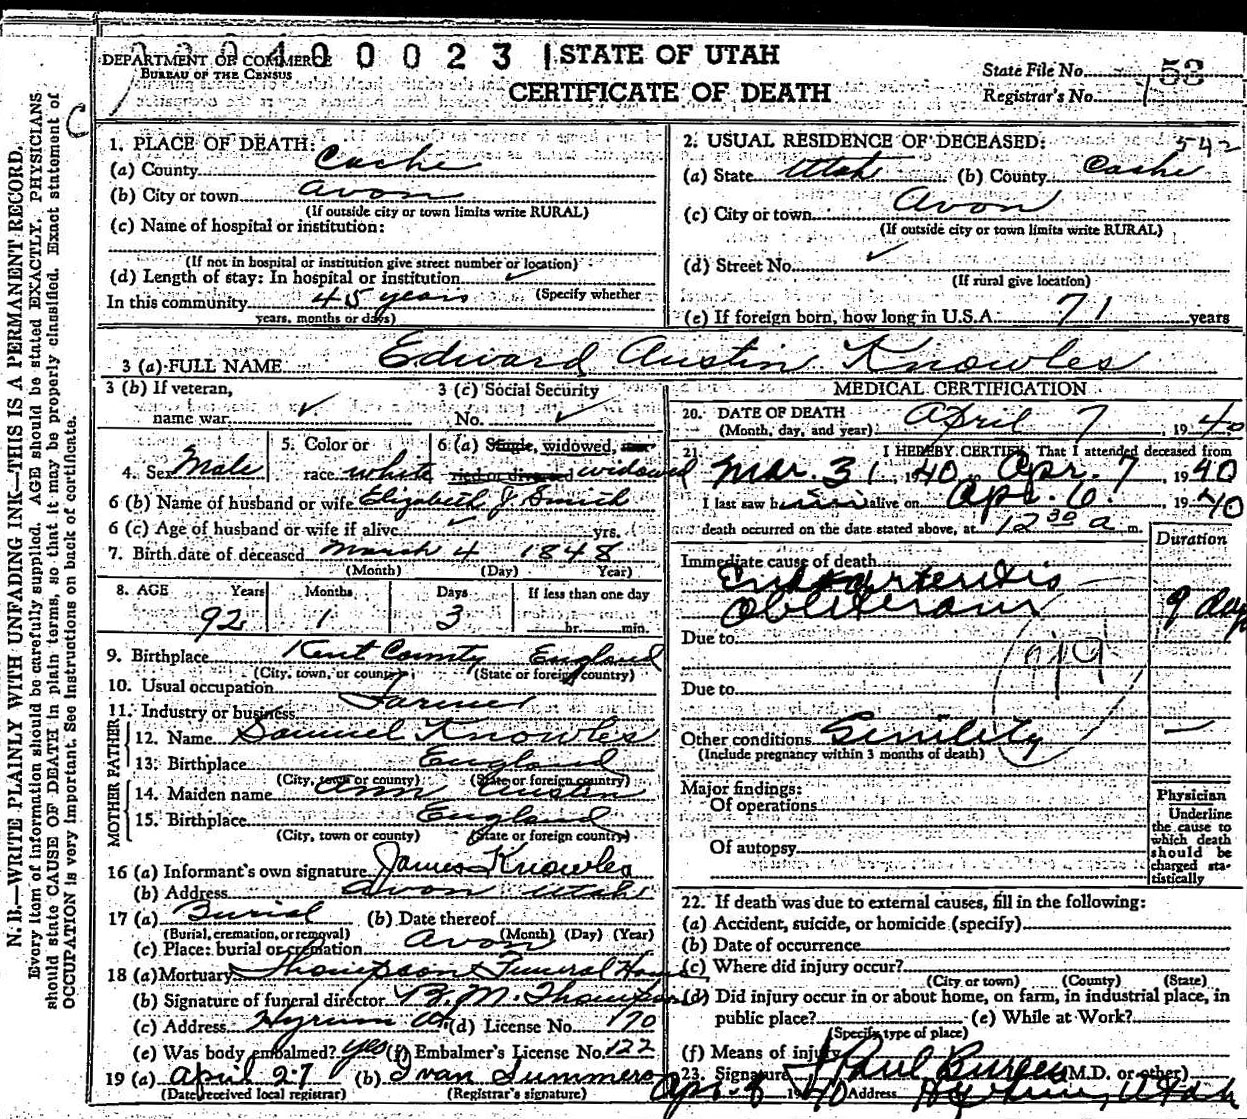 N. B.—WRITE PLAINLY WITH UNFADING INK—THIS IS A PERMANENT RECORD.
Every item of information should be carefully supplied. AGE should be stated EXACTLY. PHYSICIANS
should state CAUSE OF DEATH in plain terms, so that it may be properly classified. Exact statement of
OCCUPATION is very important. See Instructions on back of certificate.
C
DEPARTMENT OF COMMERCE
BUREAU OF THE CENSUS
0 0 2 3
STATE OF UTAH
CERTIFICATE OF DEATH
State File No.
Registrar's No.
53
1. PLACE OF DEATH:
(a) County Cache
(b) City or town Avon
(If outside city or town limits write RURAL)
(c) Name of hospital or institution:
(If not in hospital or institution give street number or location)
(d) Length of stay: In hospital or institution ✓
(Specify whether
In this community 45 years
years, months or days)
2. USUAL RESIDENCE OF DECEASED: 542
(a) State Utah (b) County Cache
(c) City or town Avon
(If outside city or town limits write RURAL)
(d) Street No. ✓
(If rural give location)
(e) If foreign born, how long in U.S.A. 71 years
3 (a) FULL NAME Edward Austin Knowles
3 (b) If veteran,
name war ✓
3 (c) Social Security
No. ✓
4. Sex Male
5. Color or
race white
6 (a) Single, widowed, mar-
ried or divorced widowed
6 (b) Name of husband or wife Elizabeth J. Smith
6 (c) Age of husband or wife if alive ✓ yrs.
7. Birth date of deceased March 4 1848
(Month) (Day) Year)
8. AGE Years Months Days If less than one day
92 1 3 hr. min.
9. Birthplace Kent County England
(City, town, or county) (State or foreign country)
10. Usual occupation Farmer
11. Industry or business
FATHER
12. Name Samuel Knowles
13. Birthplace England
(City, town or county) (State or foreign country)
MOTHER
14. Maiden name Ann Austin
15. Birthplace England
(City, town or county) (State or foreign country)
16 (a) Informant's own signature James Knowles
(b) Address Avon Utah
17 (a) Burial (b) Date thereof
(Burial, cremation, or removal) (Month) (Day) (Year)
(c) Place: burial or cremation Avon
18 (a) Mortuary Thompson Funeral Home
(b) Signature of funeral director B. M. Thompson
(c) Address Hyrum Ut. (d) License No. 170
(e) Was body embalmed? yes (f) Embalmer's License No. 122
19 (a) April 27 (b) Ivan Summers
(Date received local registrar) (Registrar's signature)
MEDICAL CERTIFICATION
20. DATE OF DEATH
(Month, day, and year) April 7, 1940
21. I HEREBY CERTIFY, That I attended deceased from
Mar. 31, 1940 Apr. 7, 1940
I last saw him alive on Apr. 6, 1940
death occurred on the date stated above, at 12 30 a m.
Duration
Immediate cause of death
Endoarteritis
Obliterans 9 day
Due to
Due to
Other conditions Senility —
(Include pregnancy within 3 months of death)
Major findings:
Of operations
Of autopsy
Physician
Underline
the cause to
which death
should be
charged sta-
tistically
22. If death was due to external causes, fill in the following:
(a) Accident, suicide, or homicide (specify)
(b) Date of occurrence
(c) Where did injury occur?
(City or town) (County) (State)
(d) Did injury occur in or about home, on farm, in industrial place, in
public place? (e) While at Work?
(Specify type of place)
(f) Means of injury
23. Signature Paul Burgess (M.D. or other)
Apr. 8 1940 Address Hyrum, Utah